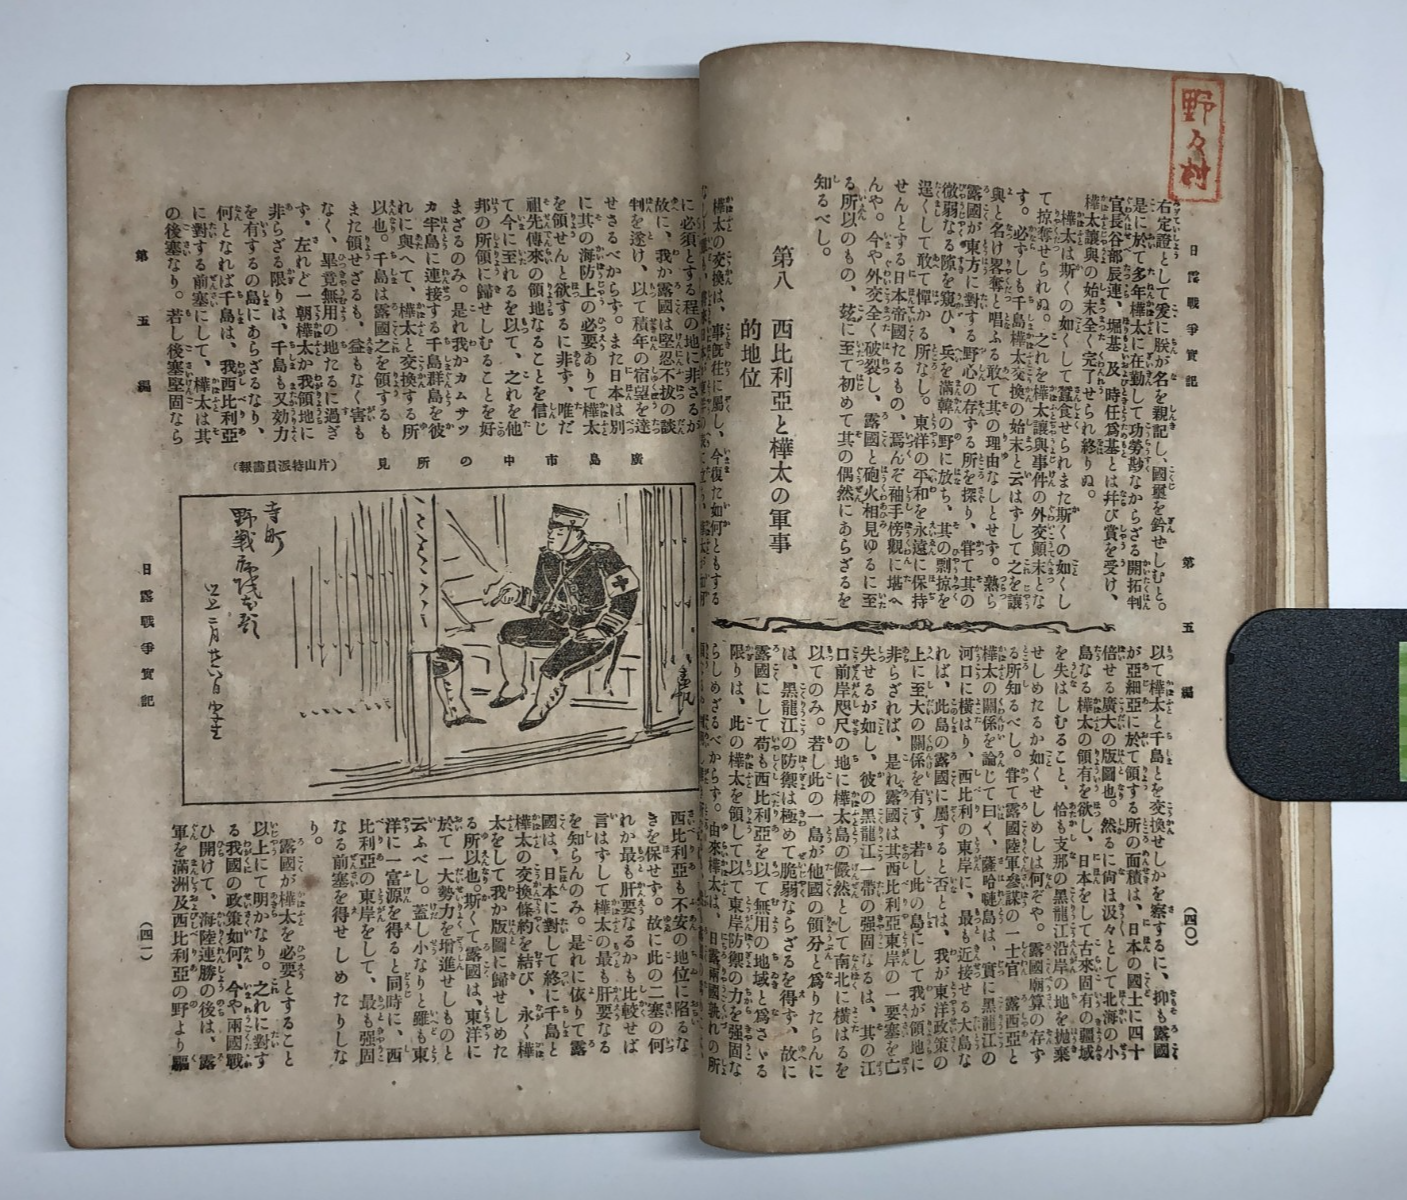 野々村
日露戰爭實記
第五編
(四〇)
右定證として爰に朕が名を親記し、國璽を鈐せしむと。
是に於て多年樺太に在勤して功勞尠なからざる開拓判
官長谷部辰連、堀基 及 時任爲基とは幷び賞を受け、
樺太讓與の始末全く完了せられ終りぬ。
樺太は斯くの如くして蠶食せられまた斯くの如くし
て掠奪せられぬ。之れを樺太讓與事件の外交顛末とな
す。必ずしも千島樺太交換の始末と云はすして之を讓
與と名け畧奪と唱ふる敢て其の理由なしとせず。熟ら
露國が東方に對する野心の存する所を探り、甞て其の
微弱なる隙を窺ひ、兵を滿韓の野に放ち、其の剽掠を
逞くして敢て憚かる所なし。東洋の平和を永遠に保持
せんとする日本帝國たるもの、焉んぞ袖手傍觀に堪へ
んや。今や外交全く破裂し、露國と砲火相見ゆるに至
る所以のもの、玆に至て初めて其の偶然にあらざるを
知るべし。
第八 西比利亞と樺太の軍事
的地位
樺太の交換は、事既往に屬し、今復た如何ともする
以て樺太と千島とを交換せしかを察するに、抑も露國
が亞細亞に於て領する所の面積は、日本の國土に四十
倍せる廣大の版圖也。然るに尙は汲々として北海の小
島なる樺太の領有を欲し、日本をして古來固有の疆域
を失はしむること、恰も支那の黑龍江沿岸の地を抛棄
せしめたるか如くせしめしは何ぞや。露國廟算の存す
る所知るべし。甞て露國陸軍參謀の一士官、露西亞と
樺太の關係を論じて曰く、薩哈嗹島は、實に黑龍江の
河口に橫はり、西比利の東岸に、最も近接せる大島な
れば、此島の露國に屬すると否とは、我が東洋政策の
上に至大の關係を有す、若し此の島にして我が領地に
非らざれば、是れ露國は其西比利亞東岸の一要塞を亡
失せるが如し、彼の黑龍江一帶の强固なるは、其の江
口前岸咫尺の地に樺太島の儼然として南北に橫はるを
以てのみ。若し此の一島が他國の領分と爲りたらんに
は、黑龍江の防禦は極めて脆弱ならざるを得す、故に
露國にして苟も西比利亞を以て無用の地域と爲さゝる
限りは、此の樺太を領して以て東岸防禦の力を强固な
らしめざるべからす。由來樺太は、日露兩國孰れの所
に必須とする程の地に非さるが
故に、我か露國は堅忍不拔の談
判を遂け、以て積年の宿望を達
せさるべからす。また日本は別
に其の海防上の必要ありて樺太
を領せんと欲するに非す、唯だ
祖先傳來の領地なることを信じ
て今に至れるを以て、之れを他
邦の所領に歸せしむることを好
まざるのみ。是れ我かカムサツ
カ半島に連接する千島群島を彼
れに與へて、樺太と交換する所
以也。千島は露國之を領するも
また領せざるも、益もなく害も
なく、畢竟無用の地たるに過ざ
す、左れど一朝樺太か我領地に
非らざる限りは、千島も又効力
を有するの島にあらざるなり、
何となれば千島は、我西比利亞
に對する前塞にして、樺太は其
の後塞なり。若し後塞堅固なら
廣島市中の所見
(片山特派員畵報)
寺町
第五編
日露戰爭實記
(四一)
西比利亞も不安の地位に陷るな
きを保せす。故に此の二塞の何
れか最も肝要なるかも比較せば
言はすして樺太の最も肝要なる
を知らんのみ。是れに依りて露
國は、日本に對して終に千島と
樺太の交換條約を結び、永く樺
太をして我か版圖に歸せしめた
る所以也。斯くて露國は、東洋に
於て一大勢力を增進せしものと
云ふべし。蓋し小なりと雖も東
洋に一富源を得ると同時に、西
比利亞の東岸をして、最も强固
なる前塞を得せしめたりしな
り。
露國が樺太を必要とすること
以上にて明かなり。之れに對す
る我國の政策如何、今や兩國戰
ひ開けて、海陸連勝の後は、露
軍を滿洲及西比利亞の野より驅